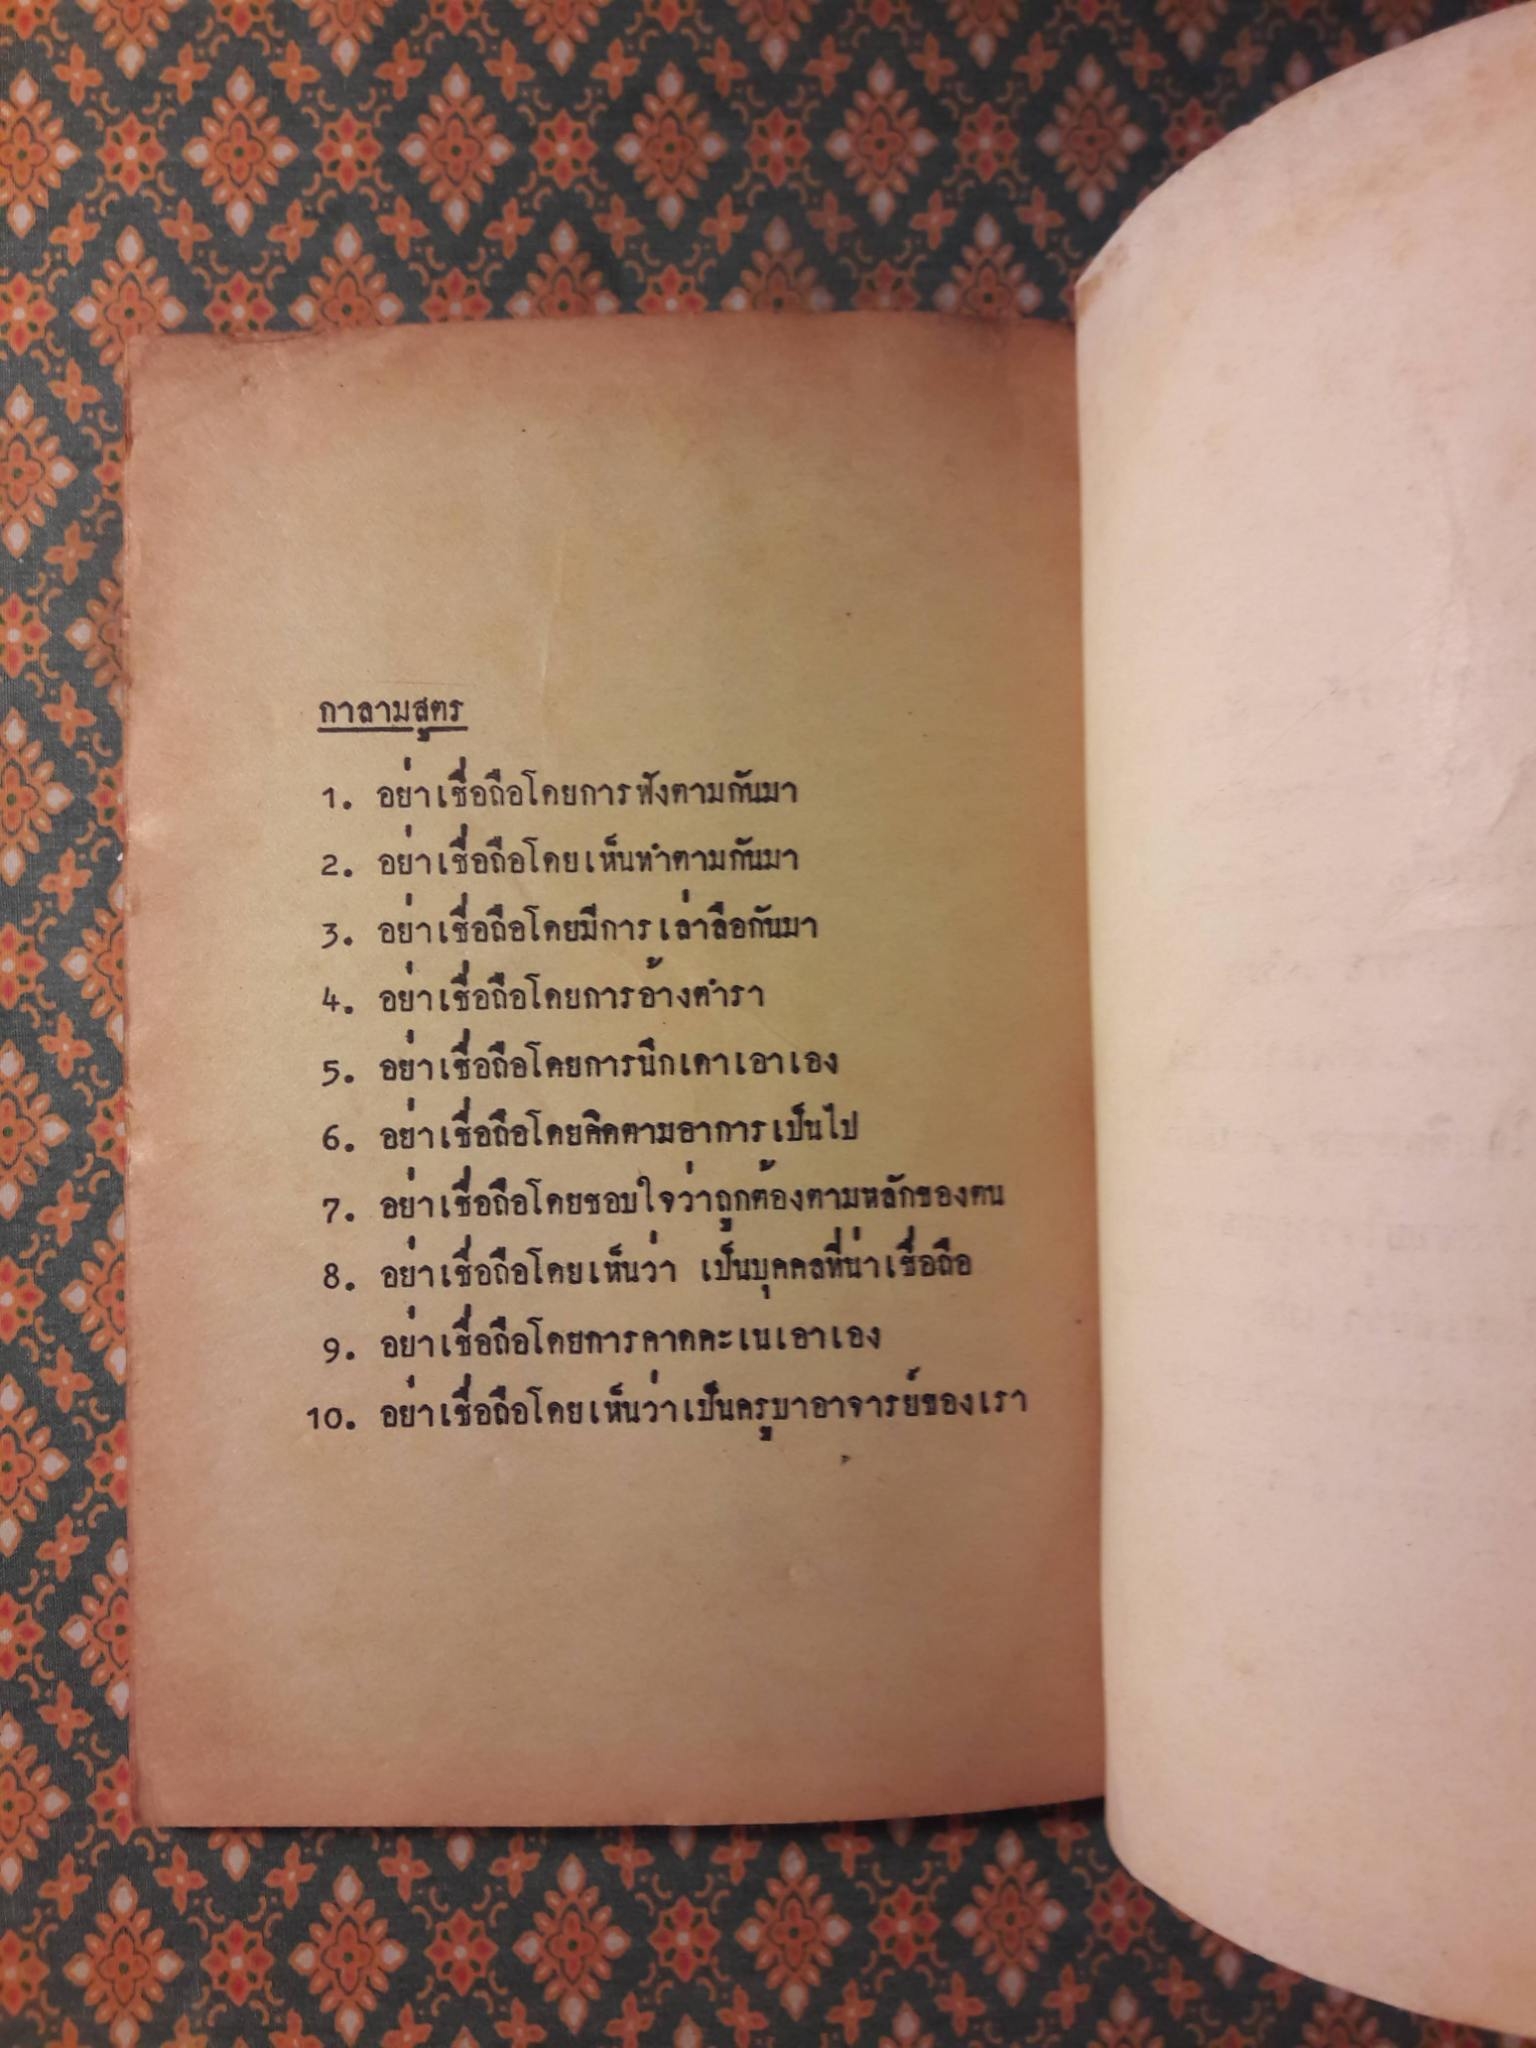 กาลามสูตร
1. อย่าเชื่อถือโดยการฟังตามกันมา
2. อย่าเชื่อถือโดยเห็นทำตามกันมา
3. อย่าเชื่อถือโดยมีการเล่าลือกันมา
4. อย่าเชื่อถือโดยการอ้างตำรา
5. อย่าเชื่อถือโดยการนึกเดาเอาเอง
6. อย่าเชื่อถือโดยคิดตามอาการเป็นไป
7. อย่าเชื่อถือโดยชอบใจว่าถูกต้องตามหลักของตน
8. อย่าเชื่อถือโดยเห็นว่า เป็นบุคคลที่น่าเชื่อถือ
9. อย่าเชื่อถือโดยการคาดคะเนเอาเอง
10. อย่าเชื่อถือโดยเห็นว่าเป็นครูบาอาจารย์ของเรา